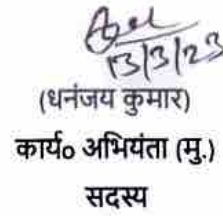 13/3/23
(धनंजय कुमार)
कार्य० अभियंता (मु.)
सदस्य